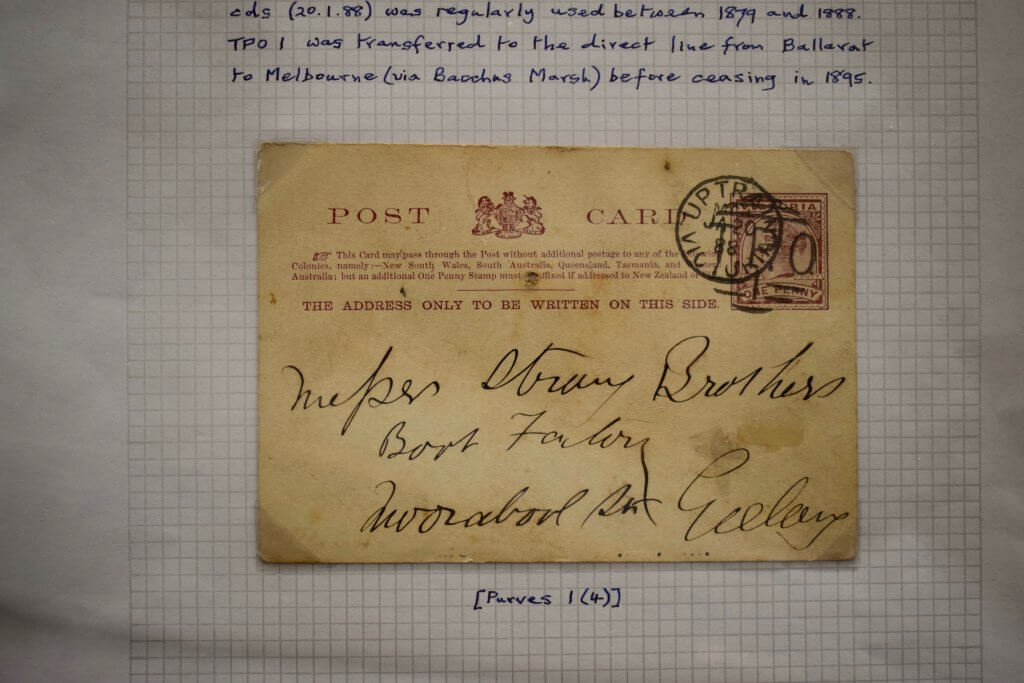 cds (20.1.88) was regularly used between 1879 and 1888.
TPO 1 was transferred to the direct line from Ballarat
to Melbourne (via Bacchus Marsh) before ceasing in 1895.
POST CARD
UP TRAIN
JA 20
88
VICTORIA
ONE PENNY
This Card may pass through the Post without additional postage to any of the
Colonies, namely:—New South Wales, South Australia, Queensland, Tasmania, and
Australia; but an additional One Penny Stamp must be affixed if addressed to New Zealand or
THE ADDRESS ONLY TO BE WRITTEN ON THIS SIDE.
Messrs Strong Brothers
Boot Factory
Moorabool St Geelong
[Purves 1(4)]